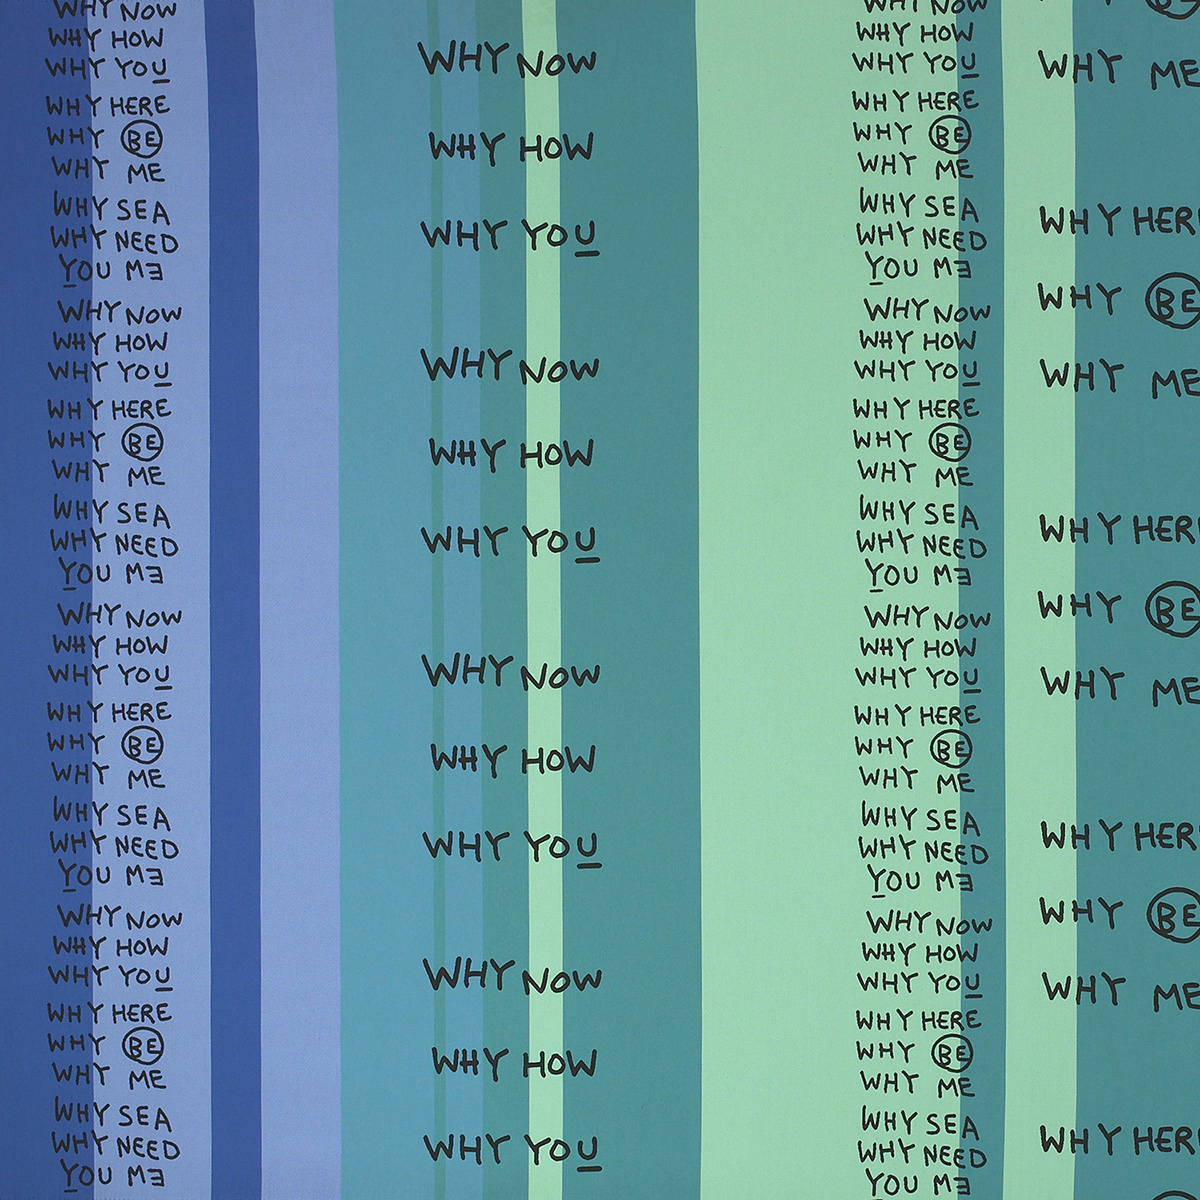 WHY NOW
WHY HOW
WHY YOU
WHY HERE
WHY BE
WHY ME
WHY SEA
WHY NEED
YOU MƎ
WHY NOW
WHY HOW
WHY YOU
WHY HERE
WHY BE
WHY ME
WHY SEA
WHY NEED
YOU MƎ
WHY NOW
WHY HOW
WHY YOU
WHY HERE
WHY BE
WHY ME
WHY SEA
WHY NEED
YOU MƎ
WHY NOW
WHY HOW
WHY YOU
WHY HERE
WHY BE
WHY ME
WHY SEA
WHY NEED
YOU MƎ
WHY NOW
WHY HOW
WHY YOU
WHY NOW
WHY HOW
WHY YOU
WHY NOW
WHY HOW
WHY YOU
WHY NOW
WHY HOW
WHY YOU
WHY NOW
WHY HOW
WHY YOU
WHY HERE
WHY BE
WHY ME
WHY SEA
WHY NEED
YOU MƎ
WHY NOW
WHY HOW
WHY YOU
WHY HERE
WHY BE
WHY ME
WHY SEA
WHY NEED
YOU MƎ
WHY NOW
WHY HOW
WHY YOU
WHY HERE
WHY BE
WHY ME
WHY SEA
WHY NEED
YOU MƎ
WHY NOW
WHY HOW
WHY YOU
WHY HERE
WHY BE
WHY ME
WHY SEA
WHY NEED
YOU MƎ
WHY ME
WHY HER
WHY BE
WHY ME
WHY HER
WHY BE
WHY ME
WHY HER
WHY BE
WHY ME
WHY HER